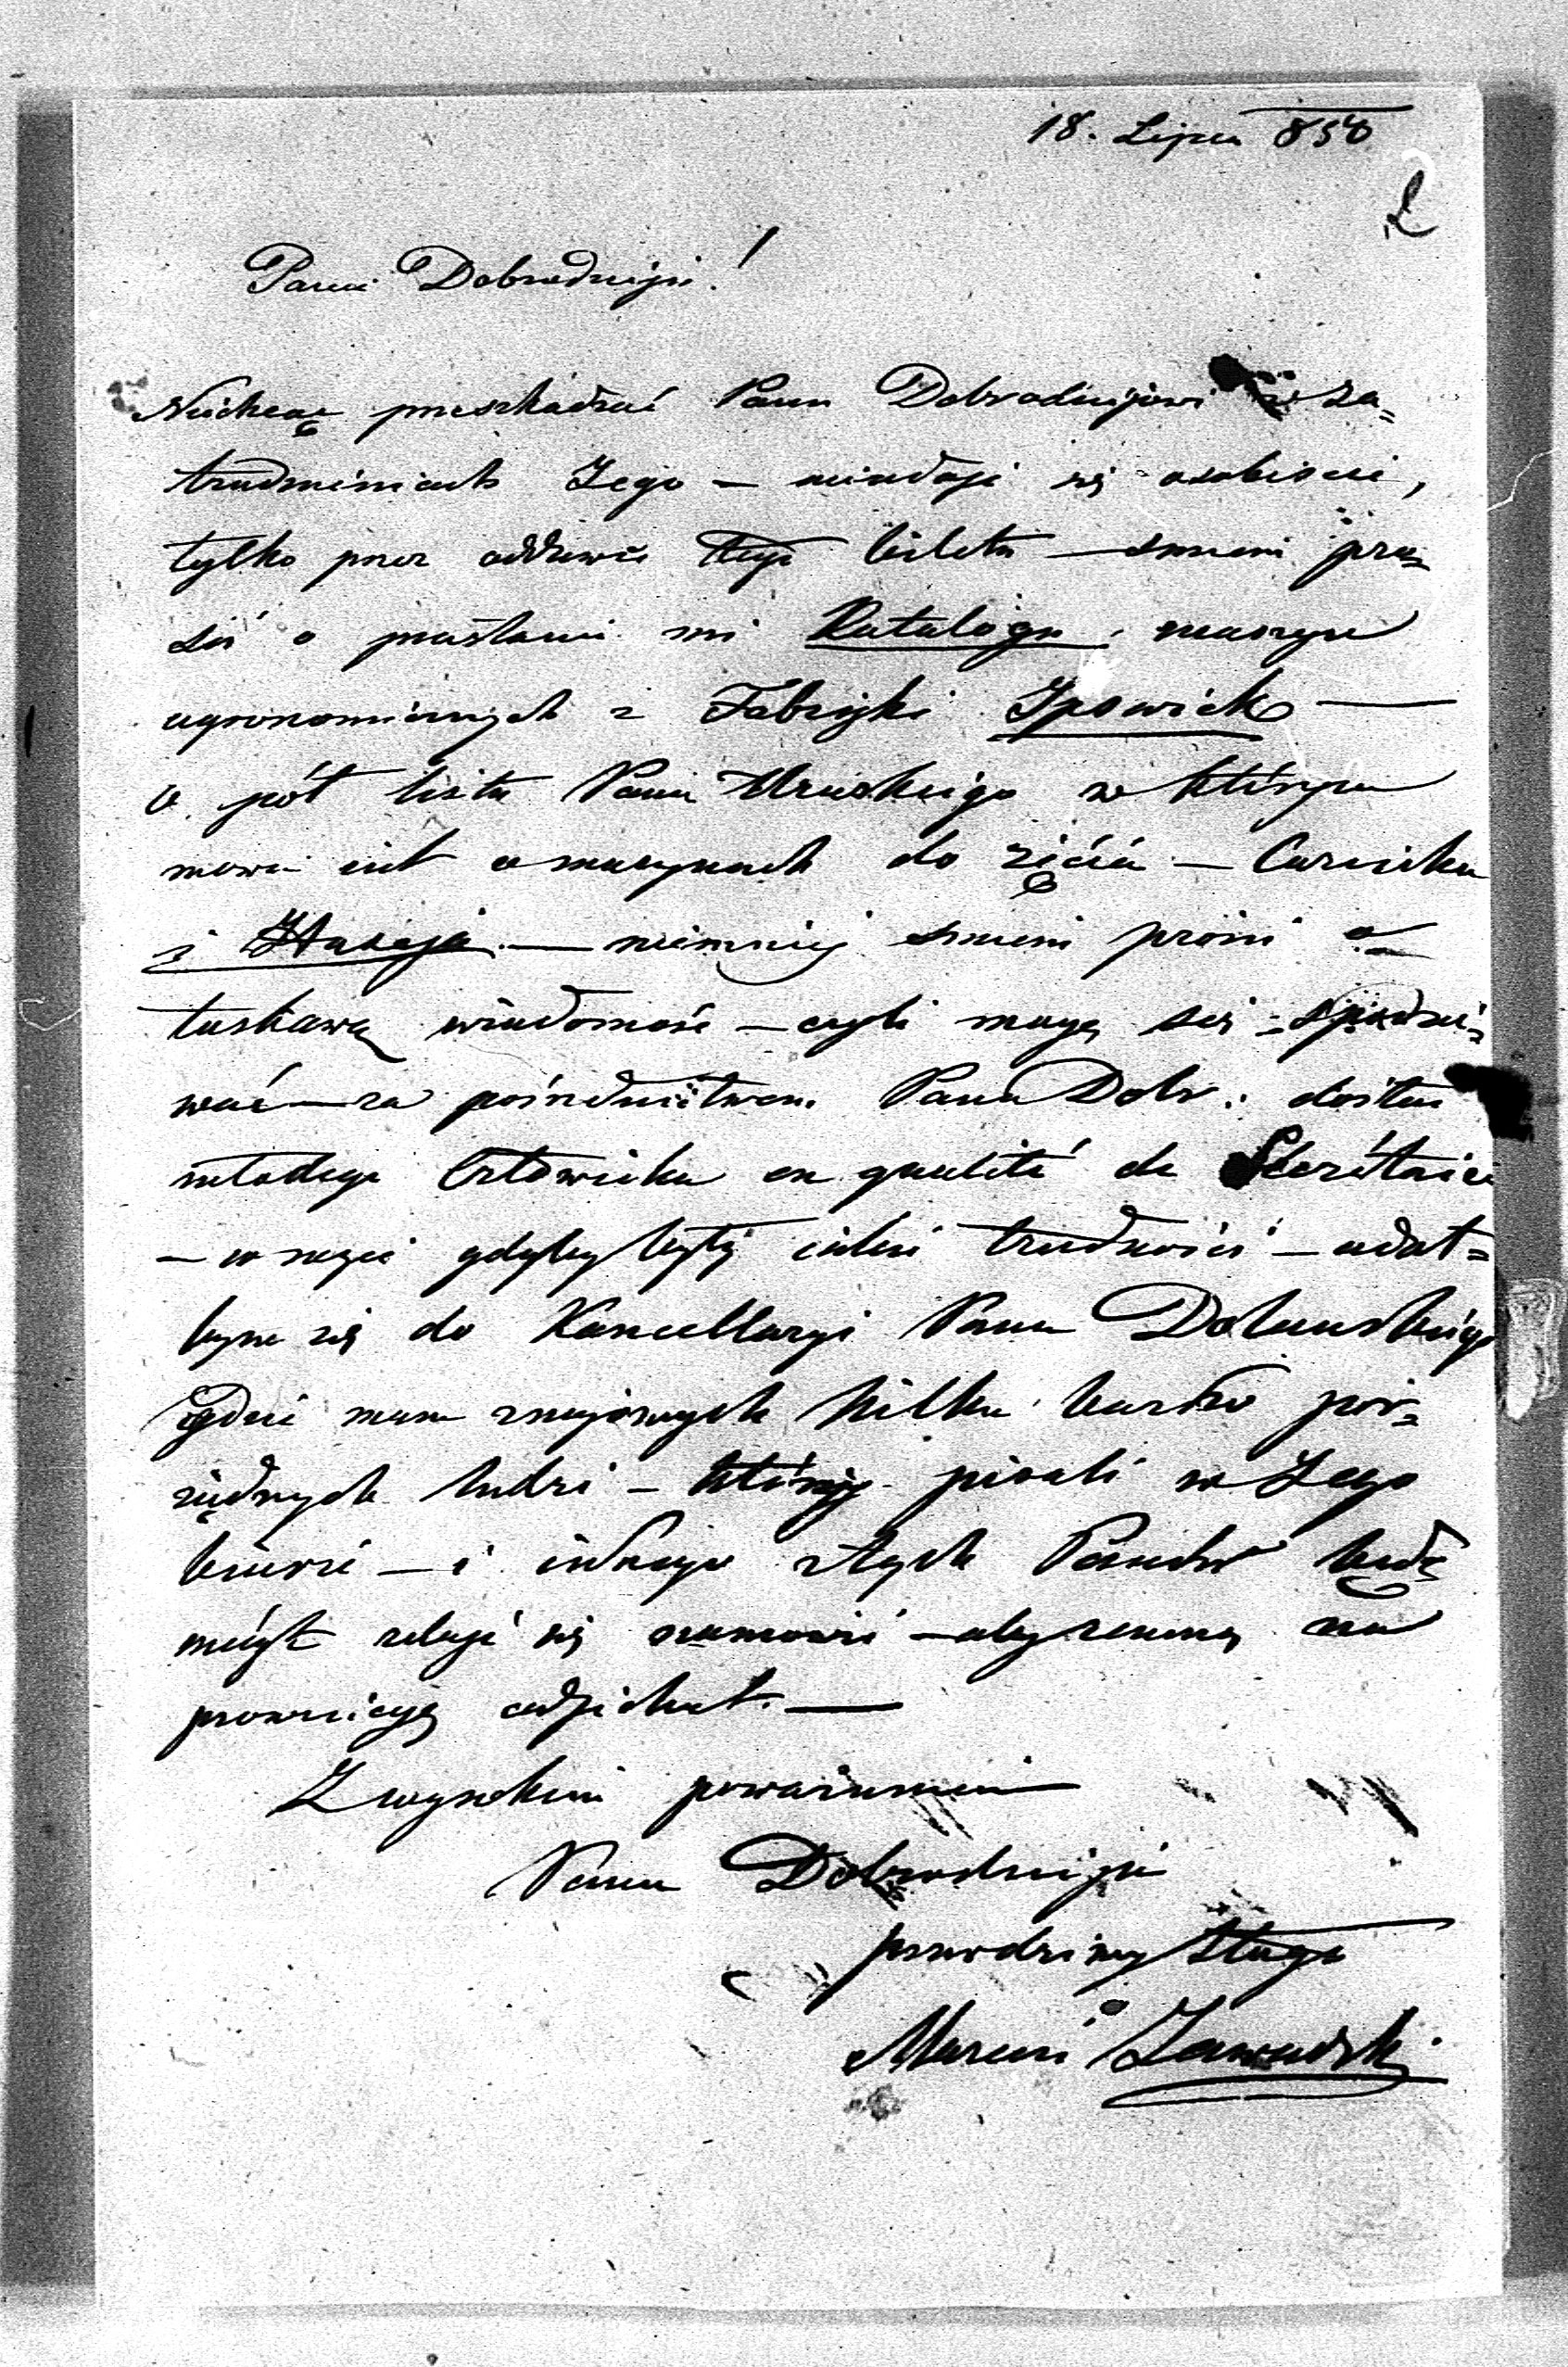 18. Lipca 858
2
Panie Dobrodzieju!
Niechcąc przeszkadzać Panu Dobrodziejowi w za=
trudnieniach Jego — nieudaję się osobiscie,
tylko przez oddawcę tego biletu — smiem pro=
sić o przysłanie mi Katalogu maszyn
agronomicznych z Fabryki Ipswich —
o pół listu Pana Uruskiego w którym
mowa jest o maszynach do żęcia — Cormika
i — niemniej smiem prosić o
łaskawą wiadomość — czyli mogę się spodzie=
wać — za pośrednictwem Pana Dobr: dostać
młodego Człowieka en qualité de Secrétaire
— w razie gdyby były jakie trudności — udał=
bym się do Kancellaryi Pana
gdzie mam znajomych kilku bardzo porz=
ządnych ludzi — którzy pisali w Jego
biurze — i jednego z tych Panów będę
mógł zdaje się namówić — aby zemną na
prowincyę odjechał. —
Z wysokiem poważaniem
Pana Dobrodzieja
prawdziwy sługa
Marcin Zawadzki